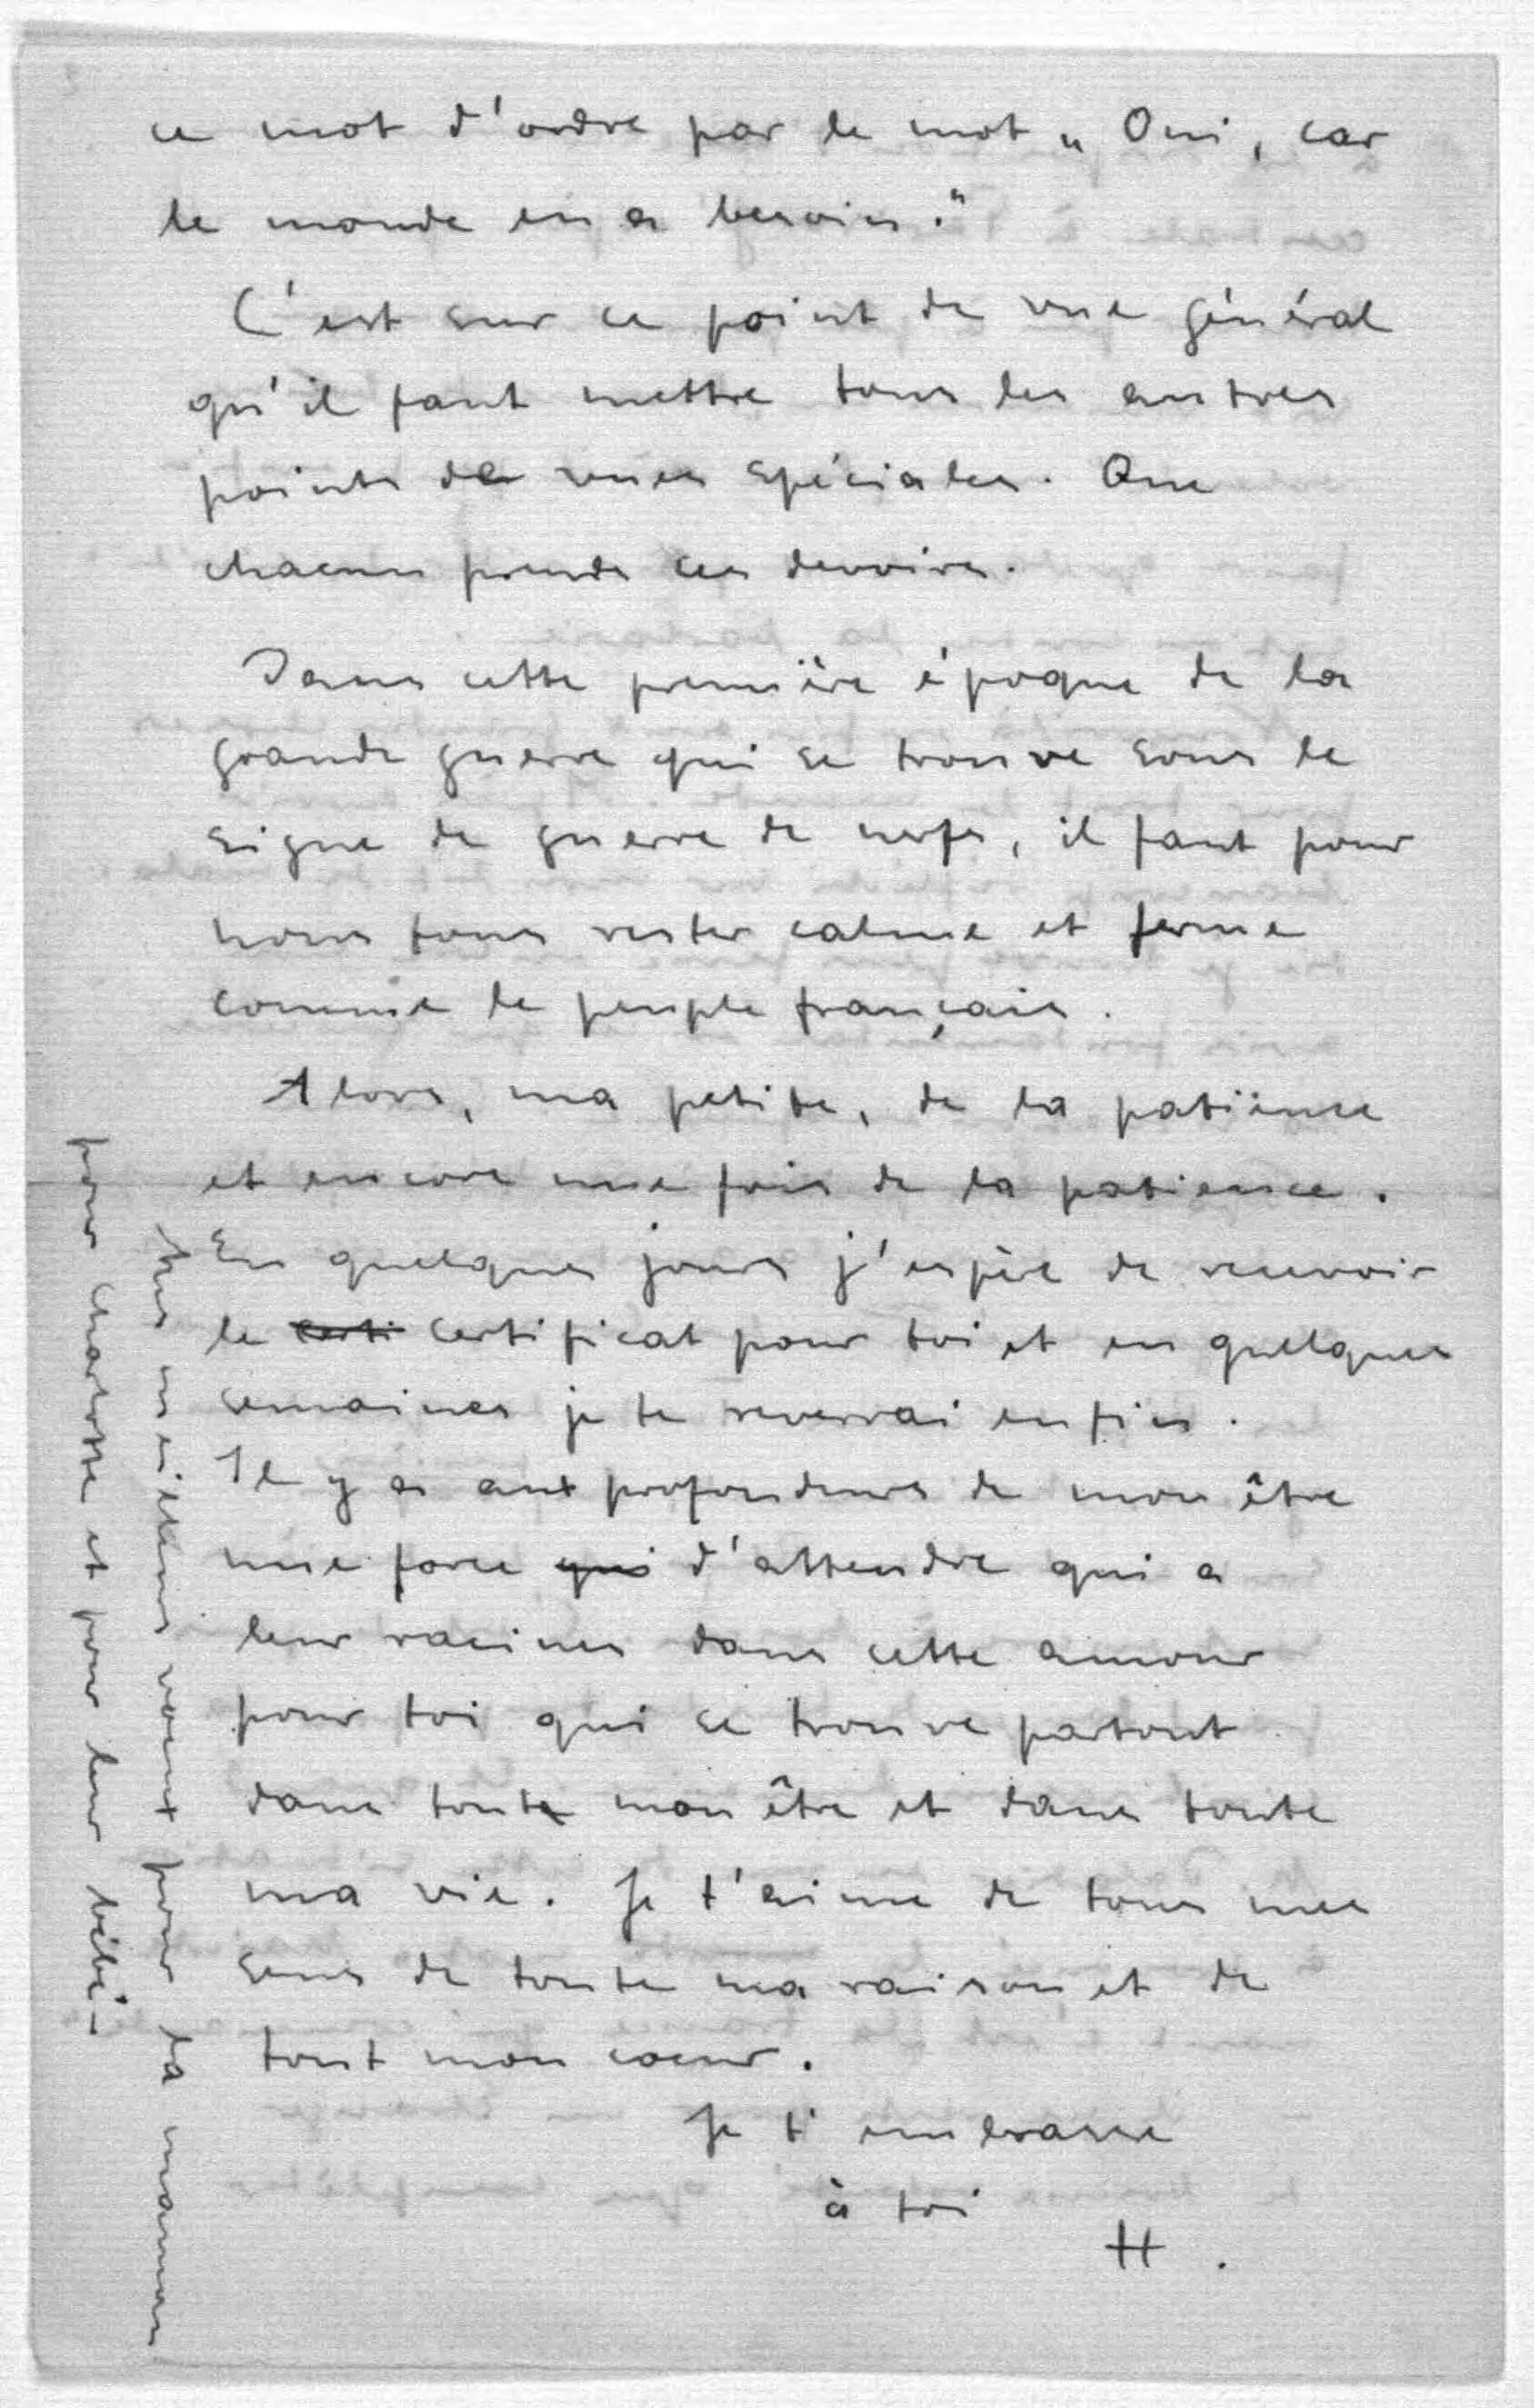 ce mot d'ordre par le mot „Oui, car
le monde en a besoin."
C'est sur ce point de vue général
qu'il faut mettre tous les autres
points de vues spéciales. Que
chacun prends ces devoirs.
Dans cette première époque de la
grande guerre qui se trouve sous le
signe de guerre de nerfs, il faut pour
nous tous rester calme et ferme
comme le peuple français.
Alors, ma petite, de la patience
et encore une fois de la patience.
En quelques jours j'espère de recevoir
le certi certificat pour toi et en quelques
semaines je te reverrai enfin.
Il y a aux profondeurs de mon être
une force qui d'attendre qui a
leur racines dans cette amour
pour toi qui se trouve partout
dans toute mon être et dans toute
ma vie. Je t'aime de tous mes
sens de toute ma raison et de
tout mon coeur.
Je t'embrasse
à toi
H.
Mes meilleurs voeux pour la maman
pour Charlotte et pour leur bébé.-